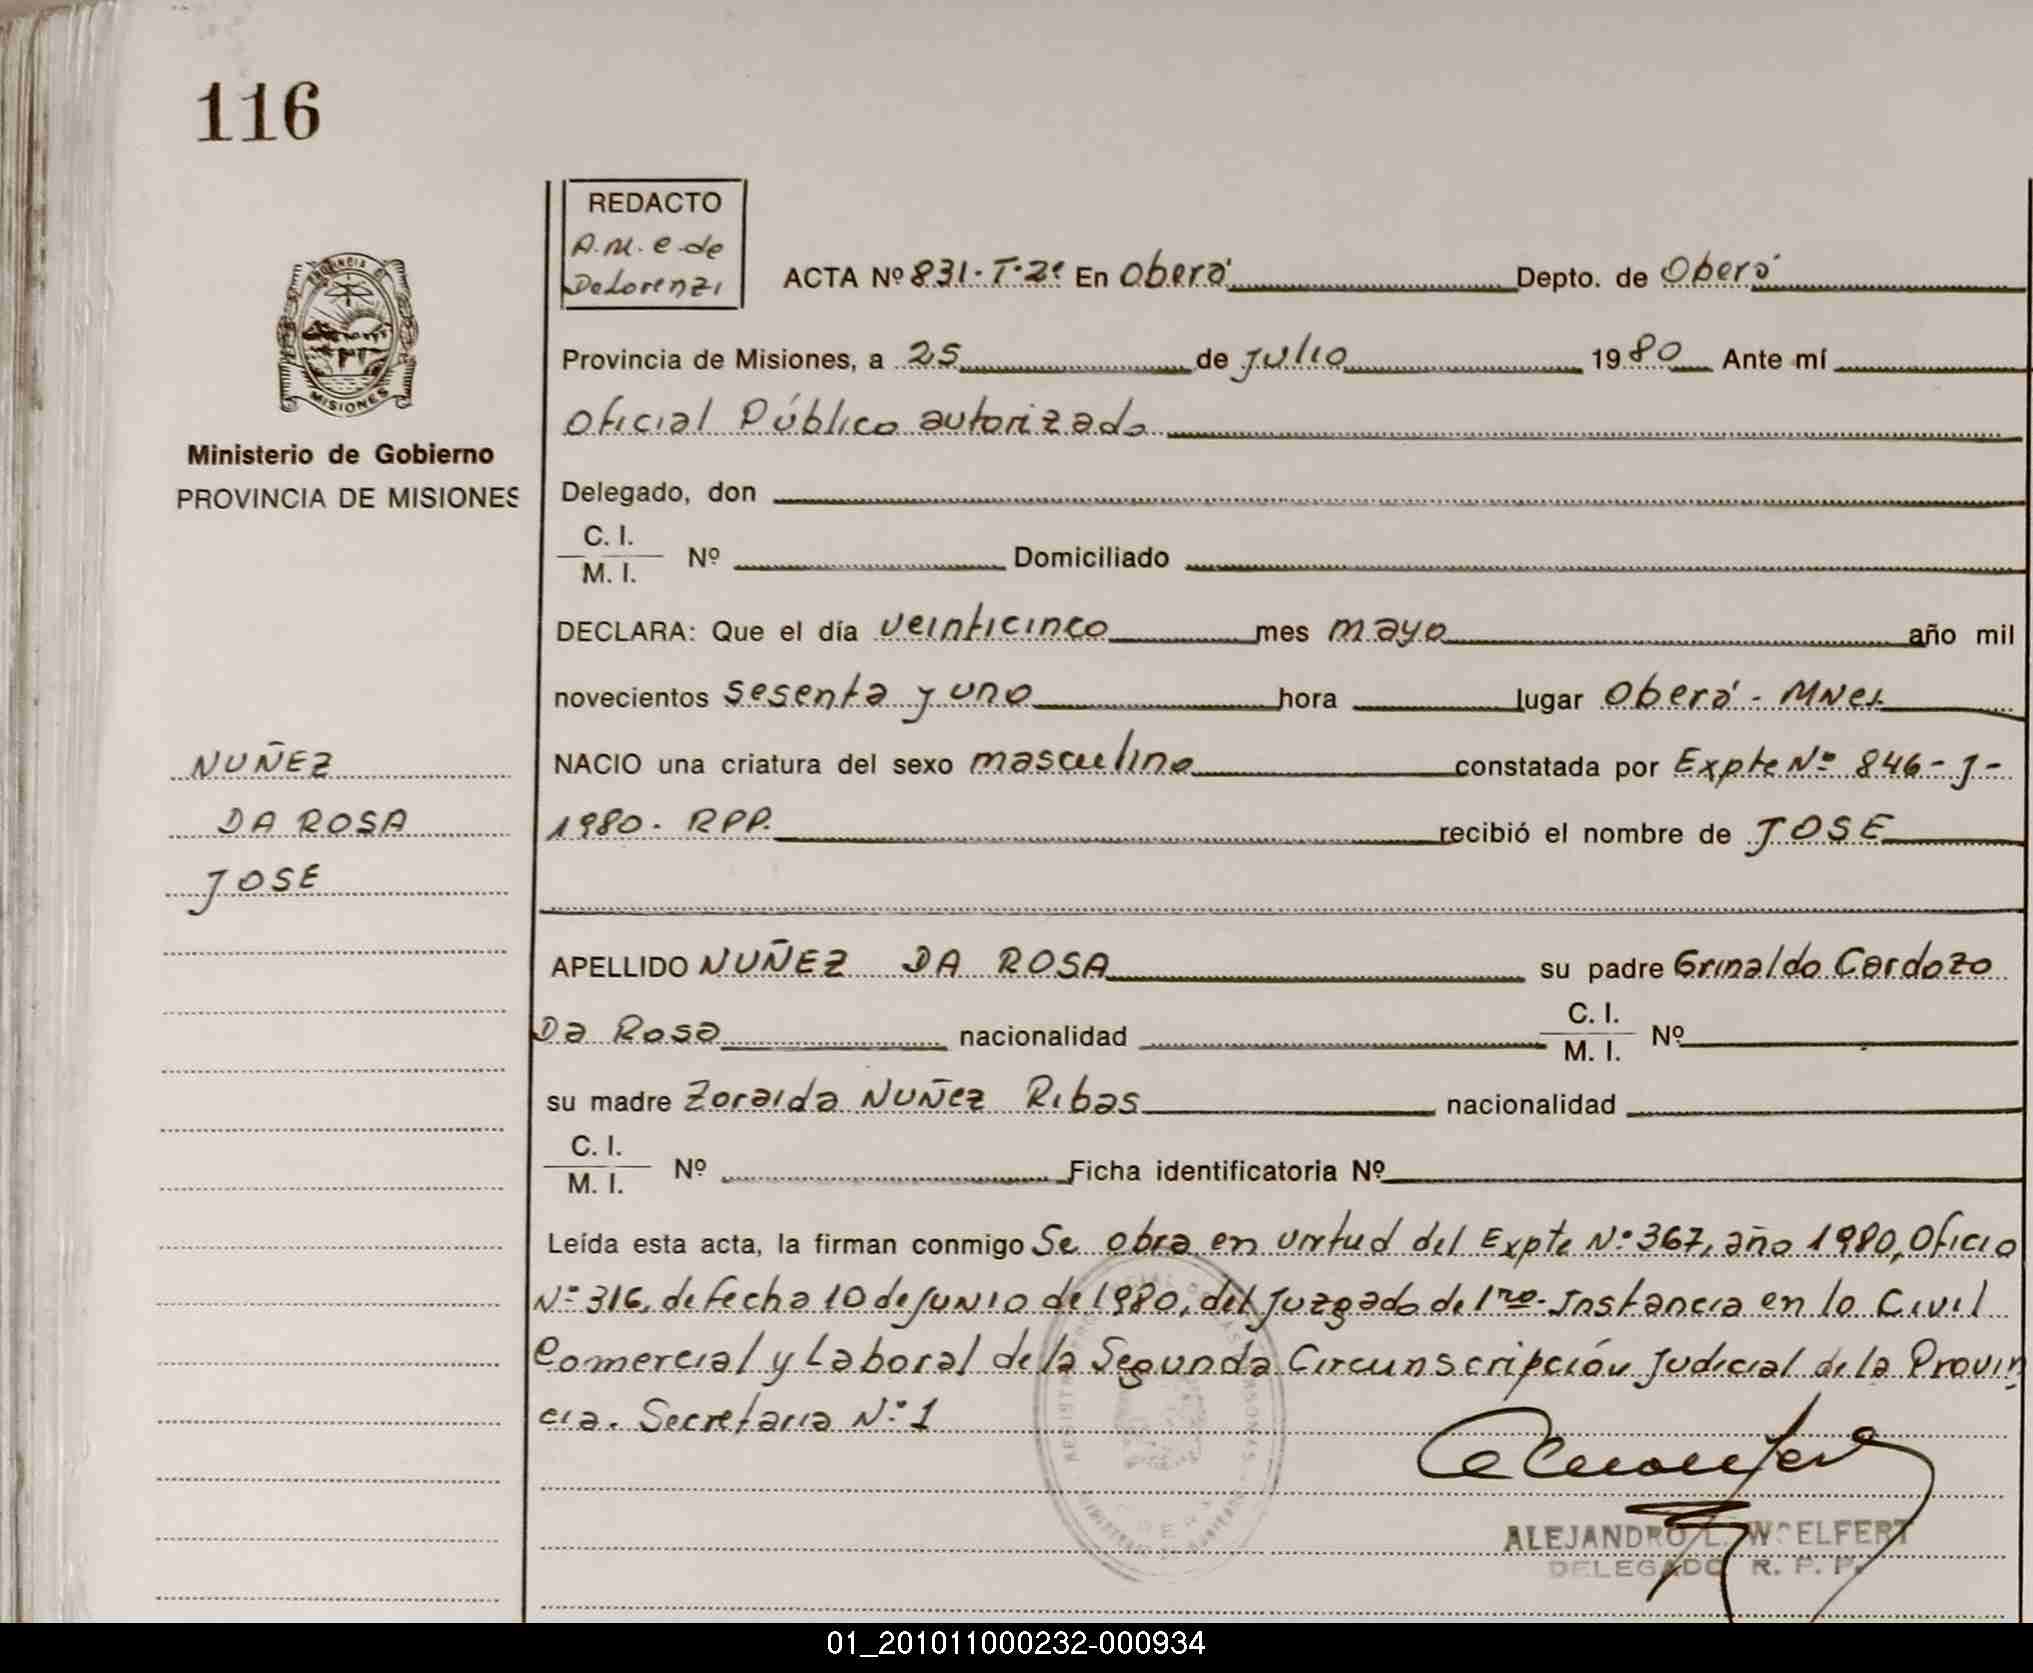 116
REDACTO
A.M. e de
DeLorenzi
ACTA Nº 831-T-2º En Oberá Depto. de Oberá
Provincia de Misiones, a 25 de julio 1980 Ante mí
Oficial Público autorizado
PROVINCIA DE
MISIONES
Ministerio de Gobierno
PROVINCIA DE MISIONES
Delegado, don
C. I.
M. I. Nº Domiciliado
DECLARA: Que el día veinticinco mes mayo año mil
novecientos sesenta y uno hora lugar Oberá - Mnes
NUÑEZ
DA ROSA
JOSE
NACIO una criatura del sexo masculino constatada por Expte Nº 846-J-
1980. RPP. recibió el nombre de JOSE
APELLIDO NUÑEZ DA ROSA su padre Grinaldo Cardozo
Da Rosa nacionalidad C. I. M. I. Nº
su madre Zoraida Nuñez Ribas nacionalidad
C. I.
M. I. Nº Ficha identificatoria Nº
Leída esta acta, la firman conmigo Se obra en virtud del Expte Nº 367, año 1980, Oficio
Nº 316, de fecha 10 de junio de 1980, del Juzgado de 1ra. Instancia en lo Civil
Comercial y Laboral de la Segunda Circunscripción Judicial de la Provin
cia. Secretaria Nº 1
ALEJANDRO L. WOELFERT
DELEGADO R. P. P.
01_201011000232-000934